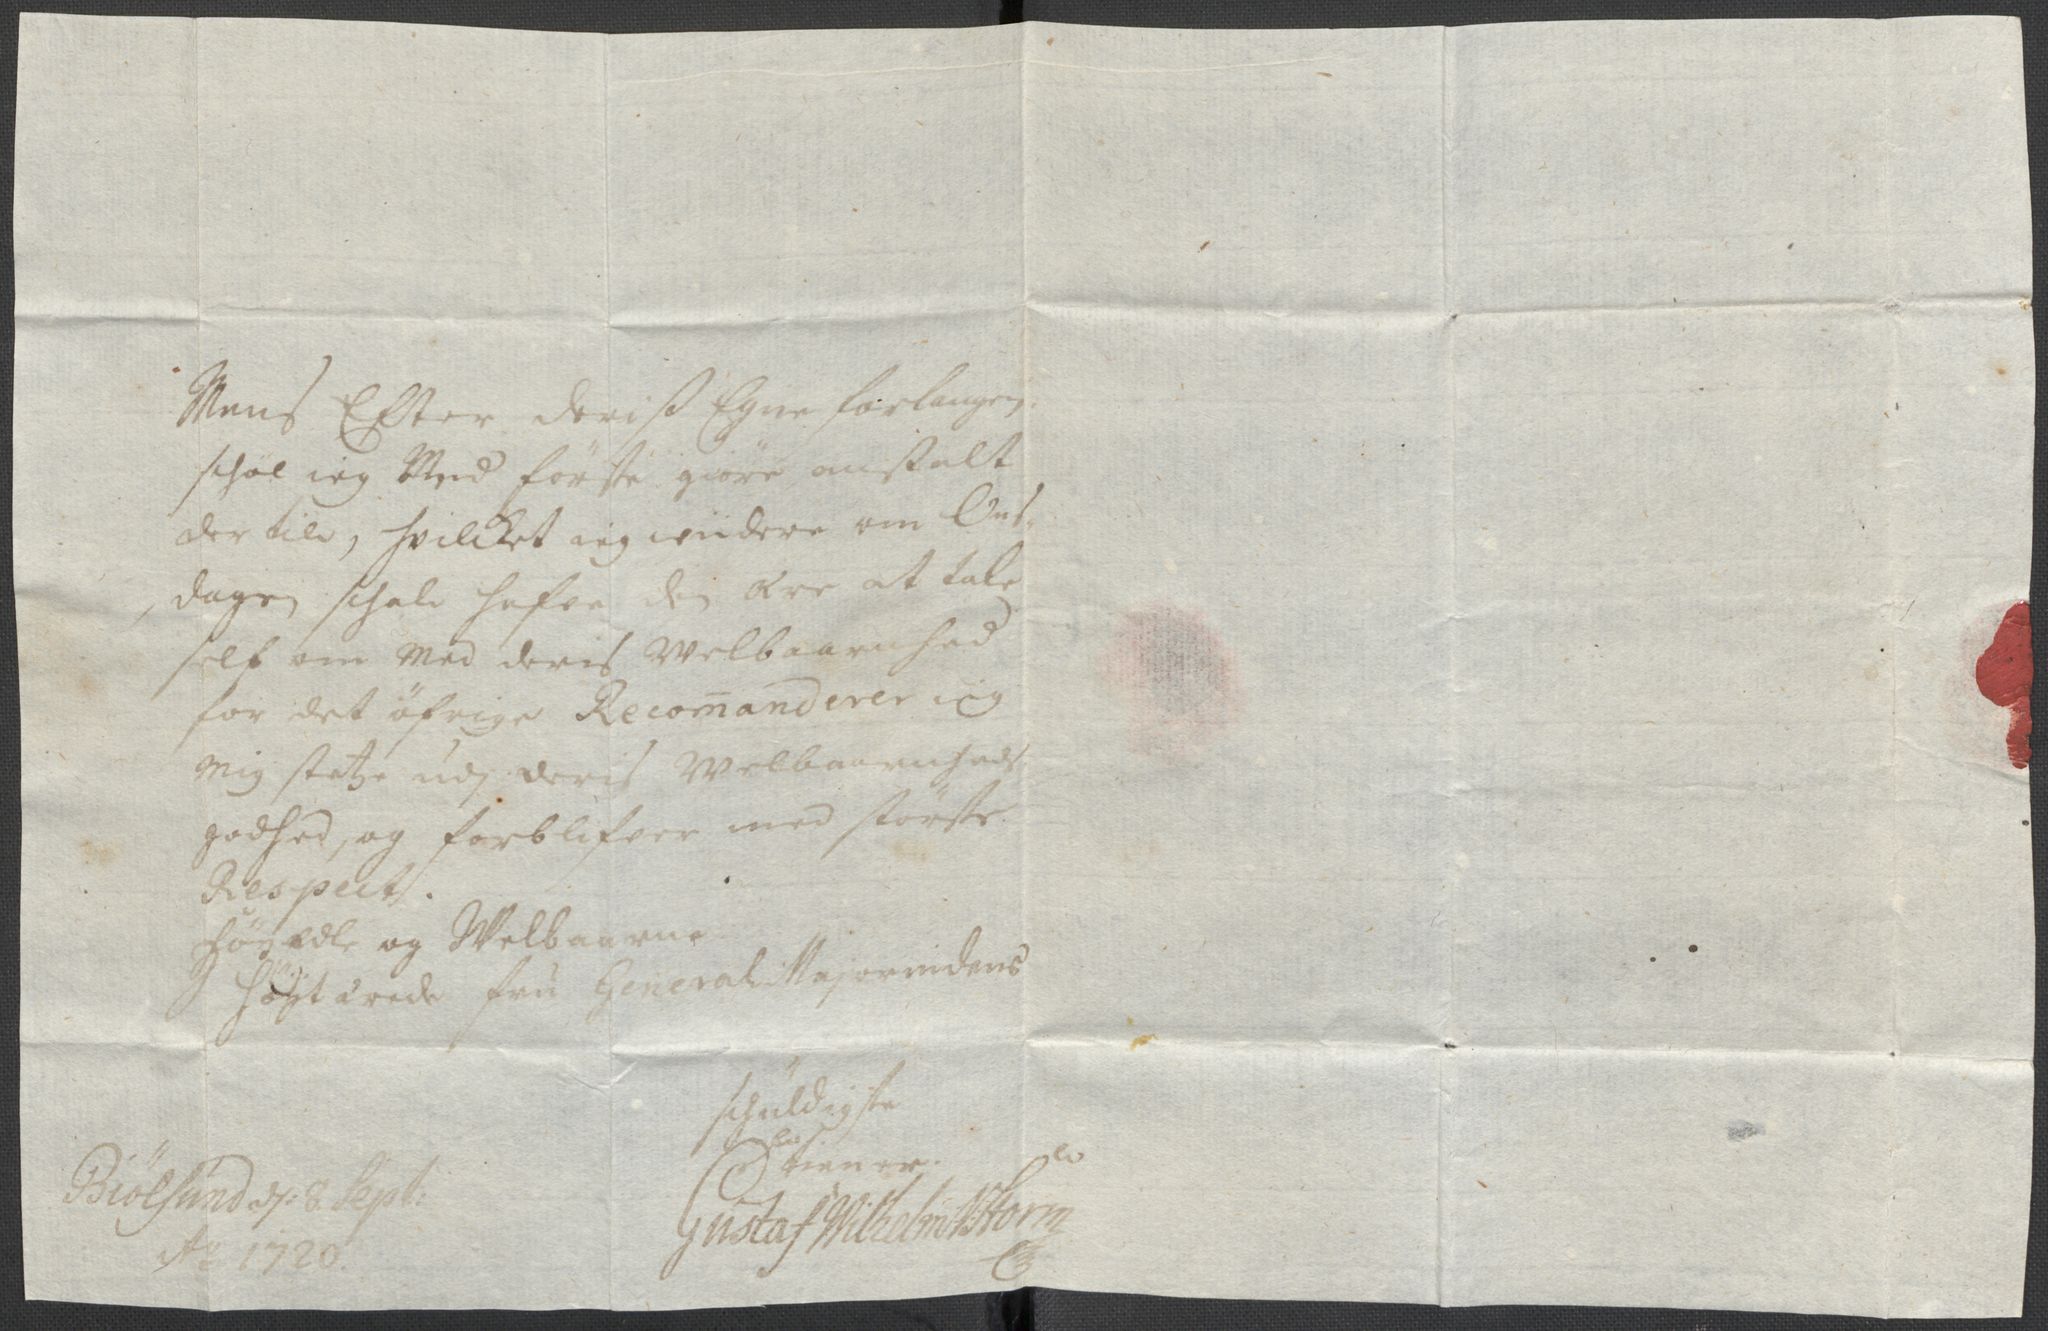 Mens Efter deris Egne forlangen,
schal ieg Med förste giöre anstalt
der till, hvilcket ieg widere om Ons,,
dagen schall hafve den ære at tale
self om med deris Welbaarnhed
for det öfrige Recom̄anderer ieg
mig stetze udj deris Welbaarnheds
godhed, og forblifver med störste
Respect.
Höyædle og Welbaarne
Höyt ærede frü General Majorindens
schüldigste
tiener.
Biölsund dj: 8 Sept:
Ao 1720.
Gustaf Wilhelm Storm